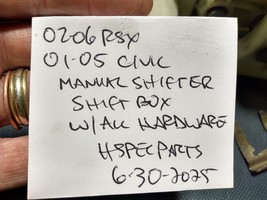 02-06 RSX
01-05 CIVIC
MANUAL SHIFTER
SHIFT BOX
W/ALL HARDWARE
HSPECPARTS
6-30-2025